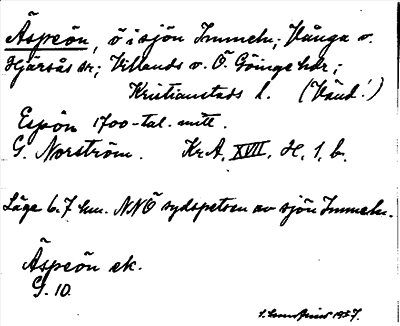 Äspeön, ö i sjön Immeln; Vånga o.
Hjärsås sr; Villands o. Ö. Göinge hdr;
Kristianstads l. (Vänd!)
Espön 1700-tal. mitt.
G. Norström. KrA, XVII, H, 1, b.
Läge 6.7 km. NNÖ sydspetsen av sjön Immeln.
Äspeön ek.
G. 10.
1937.